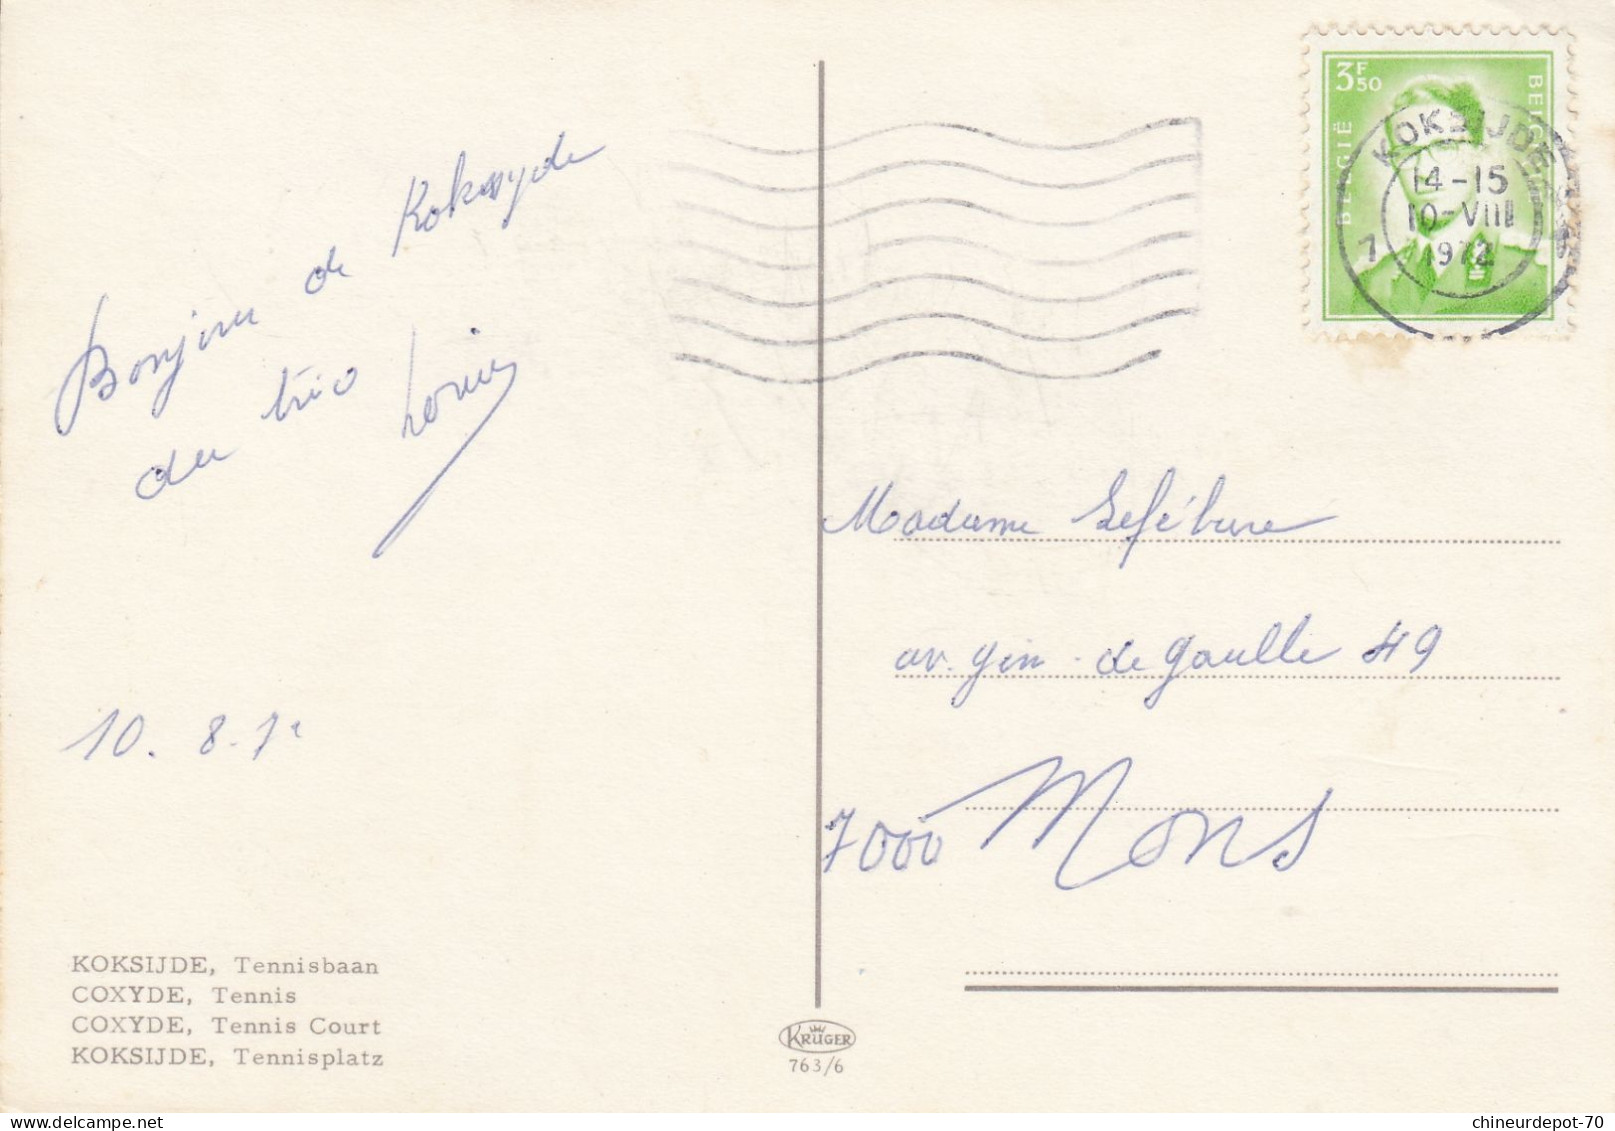 Bonjour de Koksyde
du trio Louis
10. 8. 72
KOKSIJDE, Tennisbaan
COXYDE, Tennis
COXYDE, Tennis Court
KOKSIJDE, Tennisplatz
KRÜGER
763/6
3F50
BELGIË
BELGIQUE
KOKSIJDE
14-15
10-VIII
1972
7
Madame Lefébure
av. gén. de gaulle 49
7000 Mons
chineurdepot-70